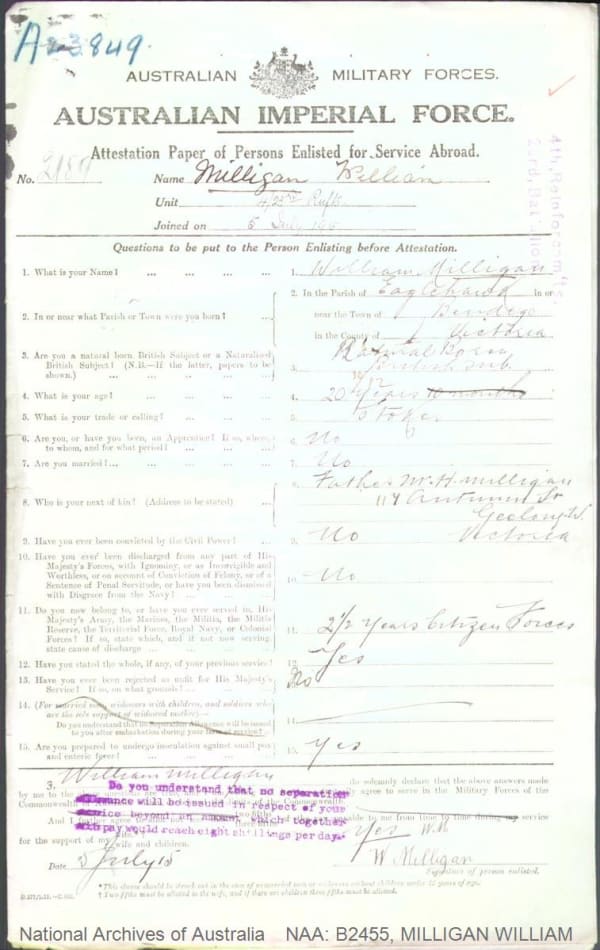 A23849.
AUSTRALIAN MILITARY FORCES.
AUSTRALIAN IMPERIAL FORCE.
Attestation Paper of Persons Enlisted for Service Abroad.
No. 2189 Name Milligan William
Unit 4/23rd Rfts
Joined on 5 July 195
4th Reinforcem'ts
23rd. Battalion
Questions to be put to the Person Enlisting before Attestation.
1. What is your Name? ... ... ... ... 1. William Milligan
2. In or near what Parish or Town were you born? ... 2. In the Parish of Eaglehawk in or
near the Town of Bendigo
in the County of Victoria
3. Are you a natural born British Subject or a Naturalized British Subject? (N.B.—If the latter, papers to be shown.) ... ... ... ... 3. Natural Born
British sub.
4. What is your age? ... ... ... ... 4. 20 years 10 months
5. What is your trade or calling? ... ... ... 5. Stoker
6. Are you, or have you been, an Apprentice? If so, where, to whom, and for what period? ... ... ... 6. No
7. Are you married? ... ... ... ... 7. No
8. Who is your next of kin? (Address to be stated) ... 8. Father W. H. Milligan
117 Autumn St
Geelong W.
Victoria
9. Have you ever been convicted by the Civil Power? ... 9. No
10. Have you ever been discharged from any part of His
Majesty's Forces, with Ignominy, or as Incorrigible and
Worthless, or on account of Conviction of Felony, or of a
Sentence of Penal Servitude, or have you been dismissed
with Disgrace from the Navy? ... ... ... 10. No
11. Do you now belong to, or have you ever served in, His
Majesty's Army, the Marines, the Militia, the Militia
Reserve, the Territorial Force, Royal Navy, or Colonial
Forces? If so, state which, and if not now serving,
state cause of discharge ... ... ... 11. 2½ Years Citizen Forces
12. Have you stated the whole, if any, of your previous service? 12. Yes
13. Have you ever been rejected as unfit for His Majesty's
Service? If so, on what grounds? ... ... ... No
14. (For married men, widowers with children, and soldiers who
are the sole support of widowed mother)—
Do you understand that no Separation Allowance will be issued
to you after embarkation during your term of service? ... 14.
15. Are you prepared to undergo inoculation against small pox
and enteric fever? ... ... ... ... 15. Yes
3. William Milligan do solemnly declare that the above answers made
by me to the
agree to serve in the Military Forces of the
Commonwealth of the Commonwealth.
Do you understand that no separation
allowance will be issued in respect of your
service beyond an amount which together
with pay would reach eight shillings per day.
And I further me from time to time during my service
Yes W.M
for the support of my wife and children.
Date 5 July 15 W. Milligan
Signature of person enlisted.
*This clause should be struck out in the case of unmarried men or widowers without children under 18 years of age.
† Two-fifths must be allotted to the wife, and if there are children three-fifths must be allotted.
National Archives of Australia NAA: B2455, MILLIGAN WILLIAM